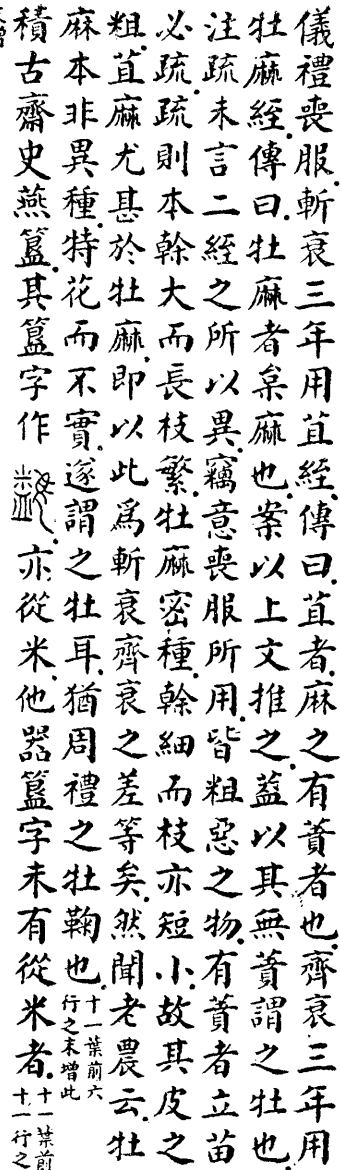 儀禮喪服斬衰三年用苴絰傳曰苴者麻之有蕡者也齊衰三年用
牡麻絰傳曰牡麻者枲麻也案以上文推之葢以其無蕡謂之牡也
注疏未言二絰之所以異竊意喪服所用皆粗惡之物有蕡者立苗
必疏疏則本榦大而長枝繁牡麻密種榦細而枝亦短小故其皮之
粗苴麻尤甚於牡麻即以此爲斬衰齊衰之差等矣然聞老農云牡
麻本非異種特花而不實遂謂之牡耳猶周禮之牡鞠也十一葉前六
行之末增此
積古齋史燕簋其簋字作 亦從米他器簋字未有從米者十一葉前
十一行之